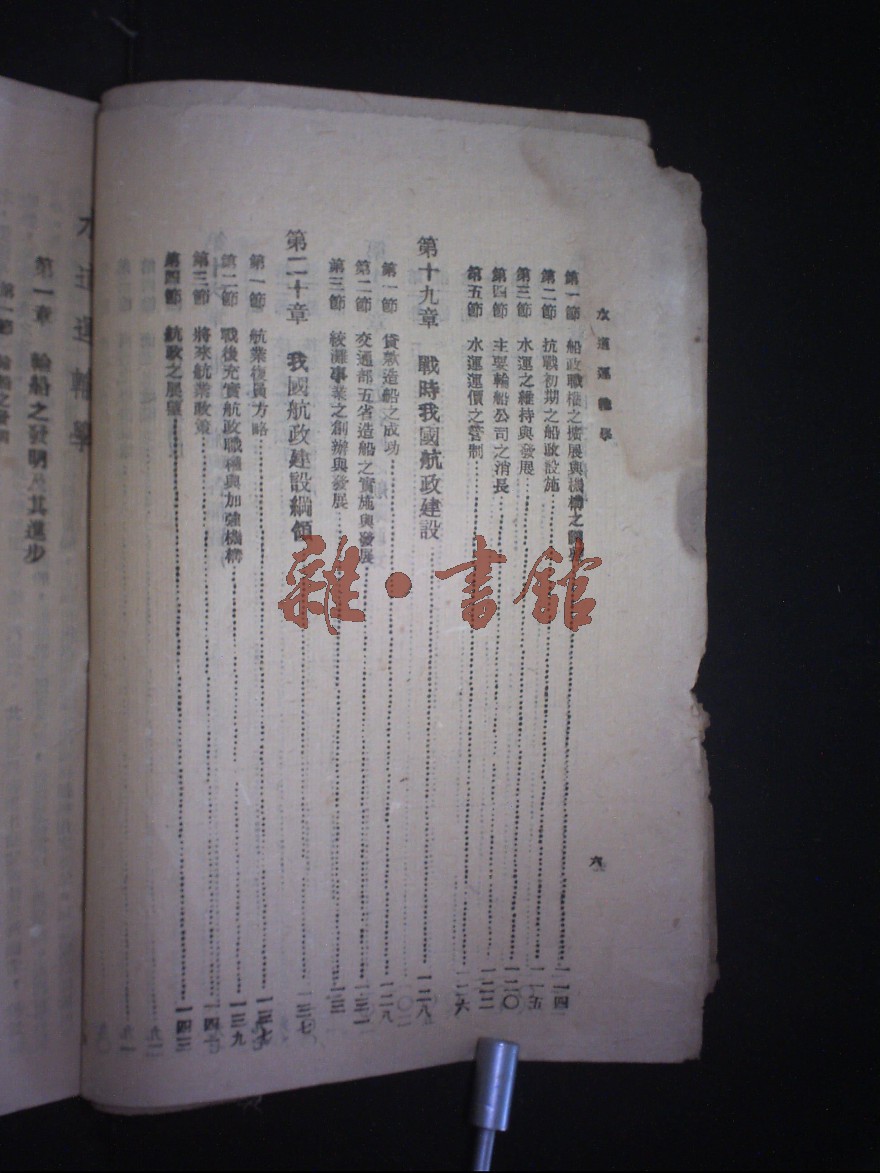 水道運輸學
六
第一節 船政職權之擴展與機構之調整 一一四
第二節 抗戰初期之船政設施 一一五
第三節 水運之維持與發展 一二〇
第四節 主要輪船公司之消長 一二二
第五節 水運運價之管制 一二六
第十九章 戰時我國航政建設 一二八
第一節 貸款造船之成功 一二八
第二節 交通部五省造船之實施與發展
第三節 絞灘事業之創辦與發展
第二十章 我國航政建設綱領 一三七
第一節 航業復員方略 一三七
第二節 戰後充實航政職權與加強機構 一三九
第三節 將來航業政策
第四節 航政之展望 一四三
雜·書館
水道運輸學
第一章 輪船之發明及其進步
第一節 輪船之發明